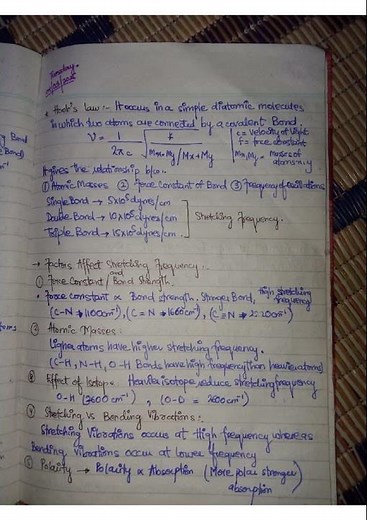 Tuesday
* Hook's law :- It occurs in a simple diatomic molecules
in which two atoms are connected by a covalent Bond.
ν = 1/2πc √ f / Mx+My / Mx+My
c = velocity of light
f = force constant
Mx, My = masses of
atoms x, y
It gives the relationship b/w.
① Atomic Masses ② Force Constant of Bond ③ Frequency of oscillations
Single Bond → 5x10⁵ dynes/cm
Double Bond → 10x10⁵ dynes/cm
Triple Bond → 15x10⁵ dynes/cm
Stretching Frequency.
→ Factors Affect Stretching Frequency :-
① Force Constant and Bond Strength.
• Force constant ∝ Bond strength. Stronger Bond, High stretching
frequency
(C-N → 1100cm⁻¹), (C=N → 1660cm⁻¹), (C≡N → 2200cm⁻¹)
② Atomic Masses :
Ligher atoms have higher stretching frequency.
(C-H, N-H, O-H Bonds have high frequency than heavier atoms)
Effect of Isotop: Heavier isotope reduce stretching frequency
O-H (3600cm⁻¹), (O-D = 2600cm⁻¹)
④ Stretching vs Bending Vibrations :.
Stretching Vibrations occurs at High frequency whereas
Bending Vibrations occur at lower frequency
Polarity → Polarity ∝ Absorption (More polar stronger
absorption)